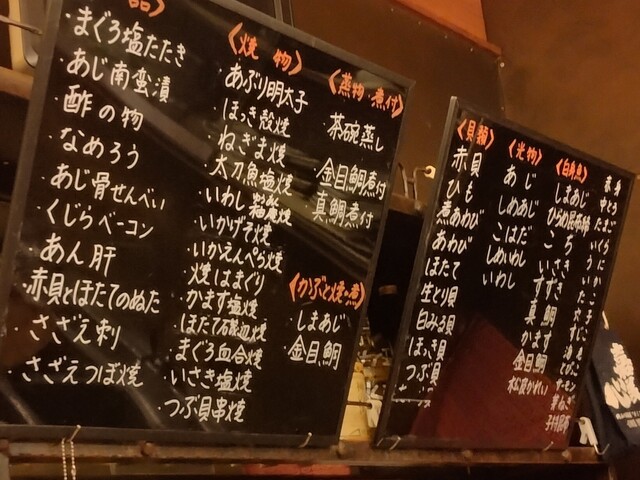 品〉
・まぐろ塩たたき
・あじ南蛮漬
・酢の物
・なめろう
・あじ骨せんべい
・くじらベーコン
・あん肝
・赤貝とほたてのぬた
・さざえ刺
・さざえつぼ焼
〈焼物〉
・あぶり明太子
・ほっき殻焼
・ねぎま焼
・太刀魚塩焼
・いわし
・いかげそ焼
・いかえんぺら焼
・焼はまぐり
・かます塩焼
・ほたて磯辺焼
・まぐろ血合焼
・いさき塩焼
・つぶ貝串焼
〈蒸物・煮付〉
茶碗蒸し
・金目鯛煮付
・真鯛煮付
〈かぶと焼・煮〉
・しまあじ
・金目鯛
〈貝類〉
赤貝
ひも
煮あわび
あわび
ほたて
生とり貝
白みる貝
ほっき貝
つぶ貝
〈光物〉
あじ
しめあじ
こはだ
しめいわし
いわし
〈白身魚〉
しまあじ
ひらめ昆布〆
こち
いさき
すずき
真鯛
かます
金目鯛
松皮がれい